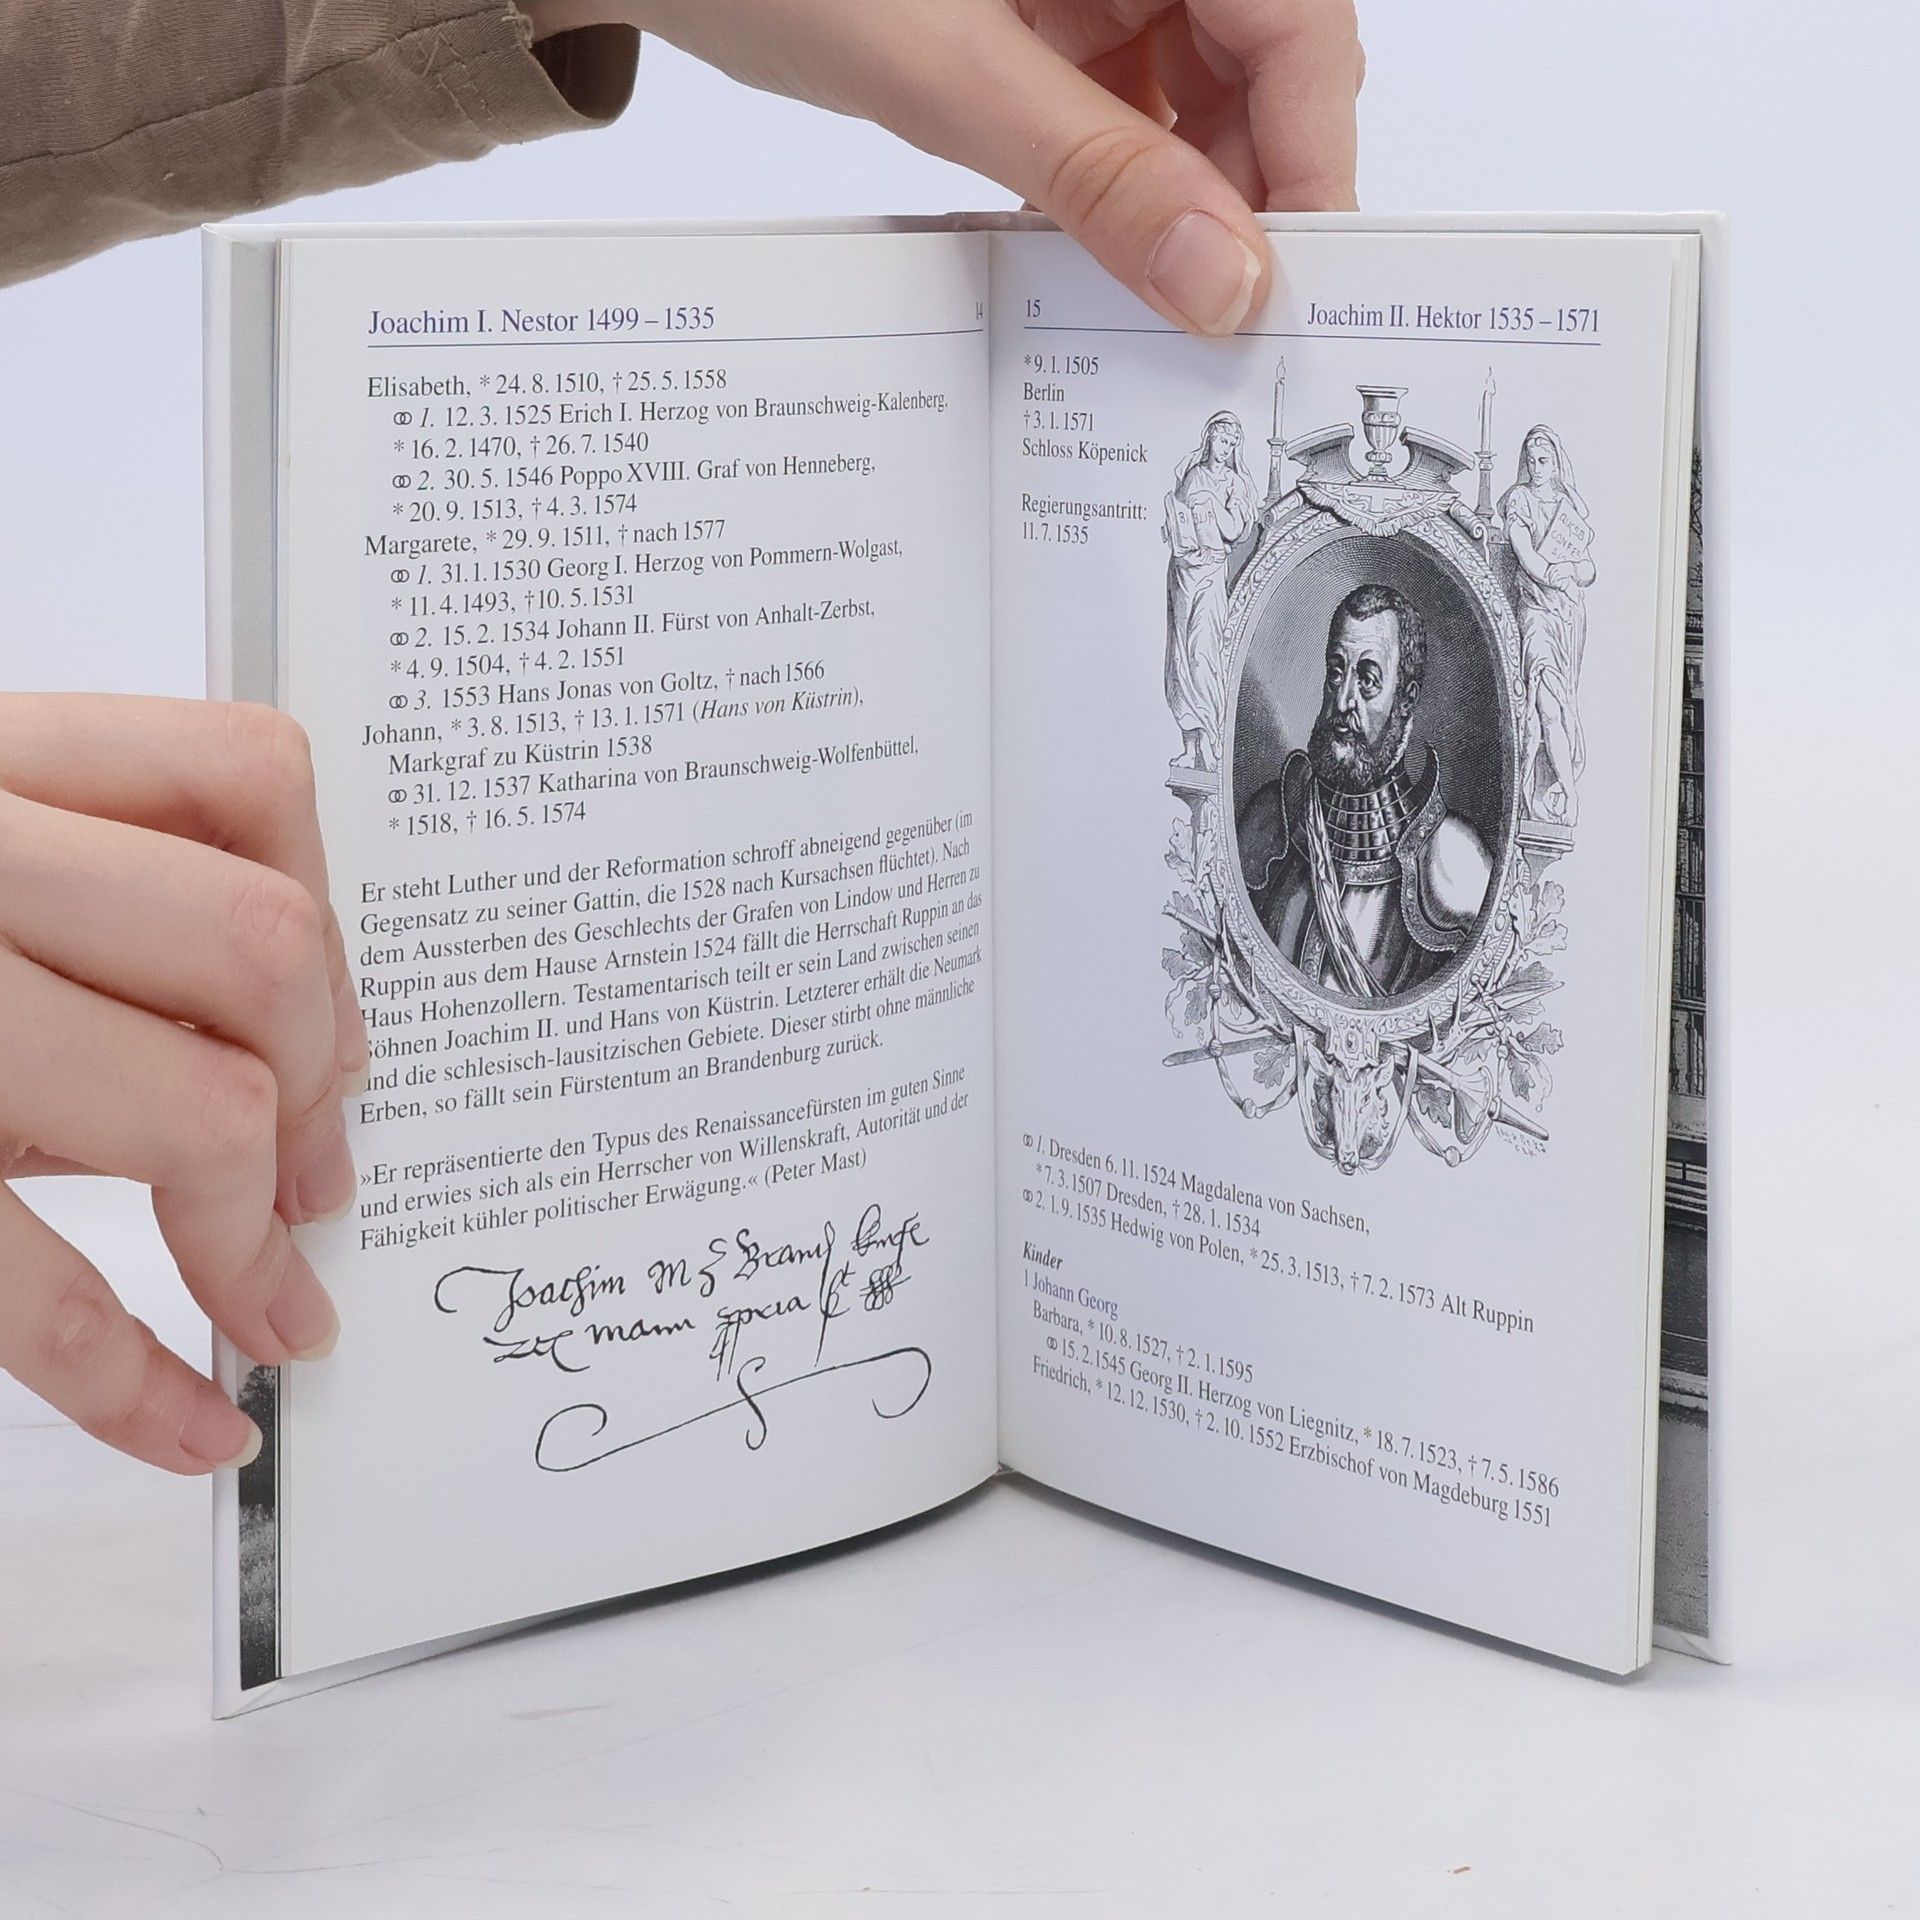 Joachim I. Nestor 1499 – 1535
14
Elisabeth, * 24. 8. 1510, † 25. 5. 1558
⚭ 1. 12. 3. 1525 Erich I. Herzog von Braunschweig-Kalenberg,
* 16. 2. 1470, † 26. 7. 1540
⚭ 2. 30. 5. 1546 Poppo XVIII. Graf von Henneberg,
* 20. 9. 1513, † 4. 3. 1574
Margarete, * 29. 9. 1511, † nach 1577
⚭ 1. 31. 1. 1530 Georg I. Herzog von Pommern-Wolgast,
* 11. 4. 1493, † 10. 5. 1531
⚭ 2. 15. 2. 1534 Johann II. Fürst von Anhalt-Zerbst,
* 4. 9. 1504, † 4. 2. 1551
⚭ 3. 1553 Hans Jonas von Goltz, † nach 1566
Johann, * 3. 8. 1513, † 13. 1. 1571 (Hans von Küstrin),
Markgraf zu Küstrin 1538
⚭ 31. 12. 1537 Katharina von Braunschweig-Wolfenbüttel,
* 1518, † 16. 5. 1574
Er steht Luther und der Reformation schroff abneigend gegenüber (im
Gegensatz zu seiner Gattin, die 1528 nach Kursachsen flüchtet). Nach
dem Aussterben des Geschlechts der Grafen von Lindow und Herren zu
Ruppin aus dem Hause Arnstein 1524 fällt die Herrschaft Ruppin an das
Haus Hohenzollern. Testamentarisch teilt er sein Land zwischen seinen
Söhnen Joachim II. und Hans von Küstrin. Letzterer erhält die Neumark
und die schlesisch-lausitzischen Gebiete. Dieser stirbt ohne männliche
Erben, so fällt sein Fürstentum an Brandenburg zurück.
»Er repräsentierte den Typus des Renaissancefürsten im guten Sinne
und erwies sich als ein Herrscher von Willenskraft, Autorität und der
Fähigkeit kühler politischer Erwägung.« (Peter Mast)
Joachim
mann
15
Joachim II. Hektor 1535 – 1571
* 9. 1. 1505
Berlin
† 3. 1. 1571
Schloss Köpenick
Regierungsantritt:
11. 7. 1535
⚭ 1. Dresden 6. 11. 1524 Magdalena von Sachsen,
* 7. 3. 1507 Dresden, † 28. 1. 1534
⚭ 2. 1. 9. 1535 Hedwig von Polen, * 25. 3. 1513, † 7. 2. 1573 Alt Ruppin
Kinder
1 Johann Georg
Barbara, * 10. 8. 1527, † 2. 1. 1595
⚭ 15. 2. 1545 Georg II. Herzog von Liegnitz, * 18. 7. 1523, † 7. 5. 1586
Friedrich, * 12. 12. 1530, † 2. 10. 1552 Erzbischof von Magdeburg 1551